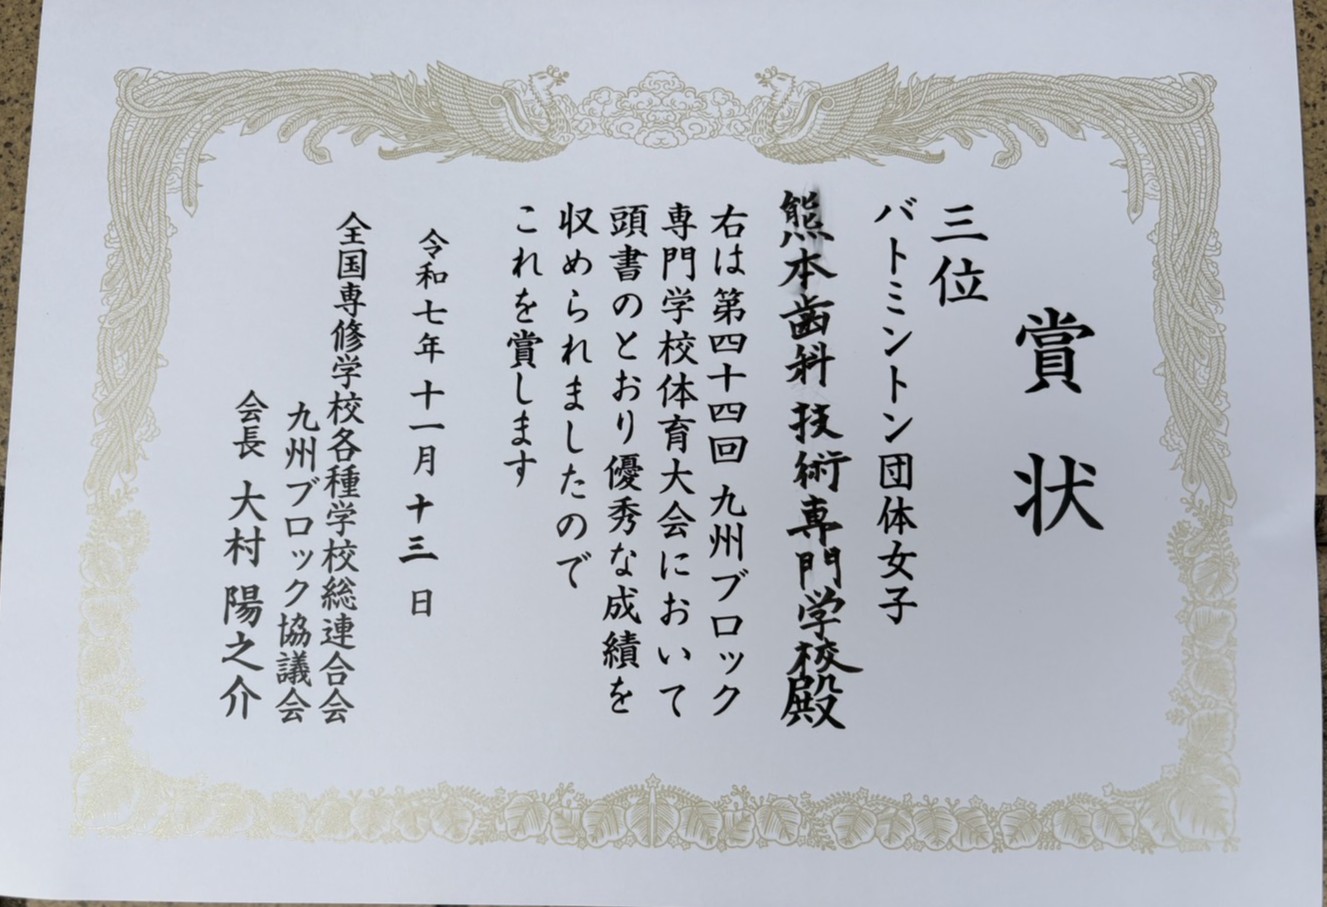 賞状
三位
バトミントン団体女子
熊本歯科技術専門学校殿
右は第四十四回 九州ブロック
専門学校体育大会において
頭書のとおり優秀な成績を
収められましたので
これを賞します
令和七年十一月十三日
全国専修学校各種学校総連合会
九州ブロック協議会
会長 大村 陽之介